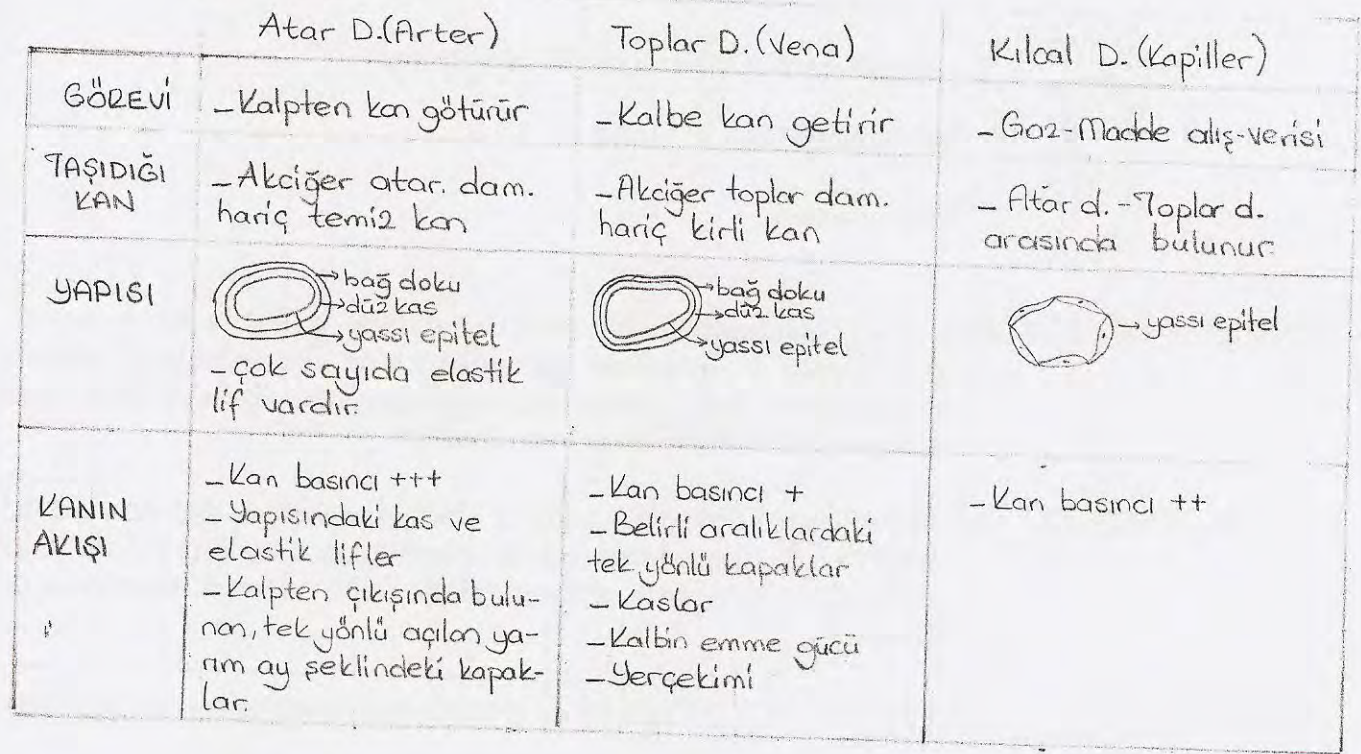 Atar D.(Arter)
Toplar D.(Vena)
Kılcal D.(Kapiller)
GÖREVİ
-Kalpten kan götürür
-Kalbe kan getirir
-Gaz-Madde alış-verisi
TAŞIDIĞI
KAN
-Akciğer atar. dam.
hariç temiz kan
-Akciğer toplar dam.
hariç kirli kan
-Atar d.-Toplar d.
arasında bulunur.
YAPISI
bağ doku
düz kas
yassı epitel
-çok sayıda elastik
lif vardır.
bağ doku
düz kas
yassı epitel
yassı epitel
KANIN
AKIŞI
-Kan basıncı +++
-Yapısındaki kas ve
elastik lifler
-Kalpten çıkışında bulu-
nan, tek yönlü açılan ya-
rım ay şeklindeki kapak-
lar.
-Kan basıncı +
-Belirli aralıklardaki
tek yönlü kapaklar
-Kaslar
-Kalbin emme gücü
-Yerçekimi
-Kan basıncı ++